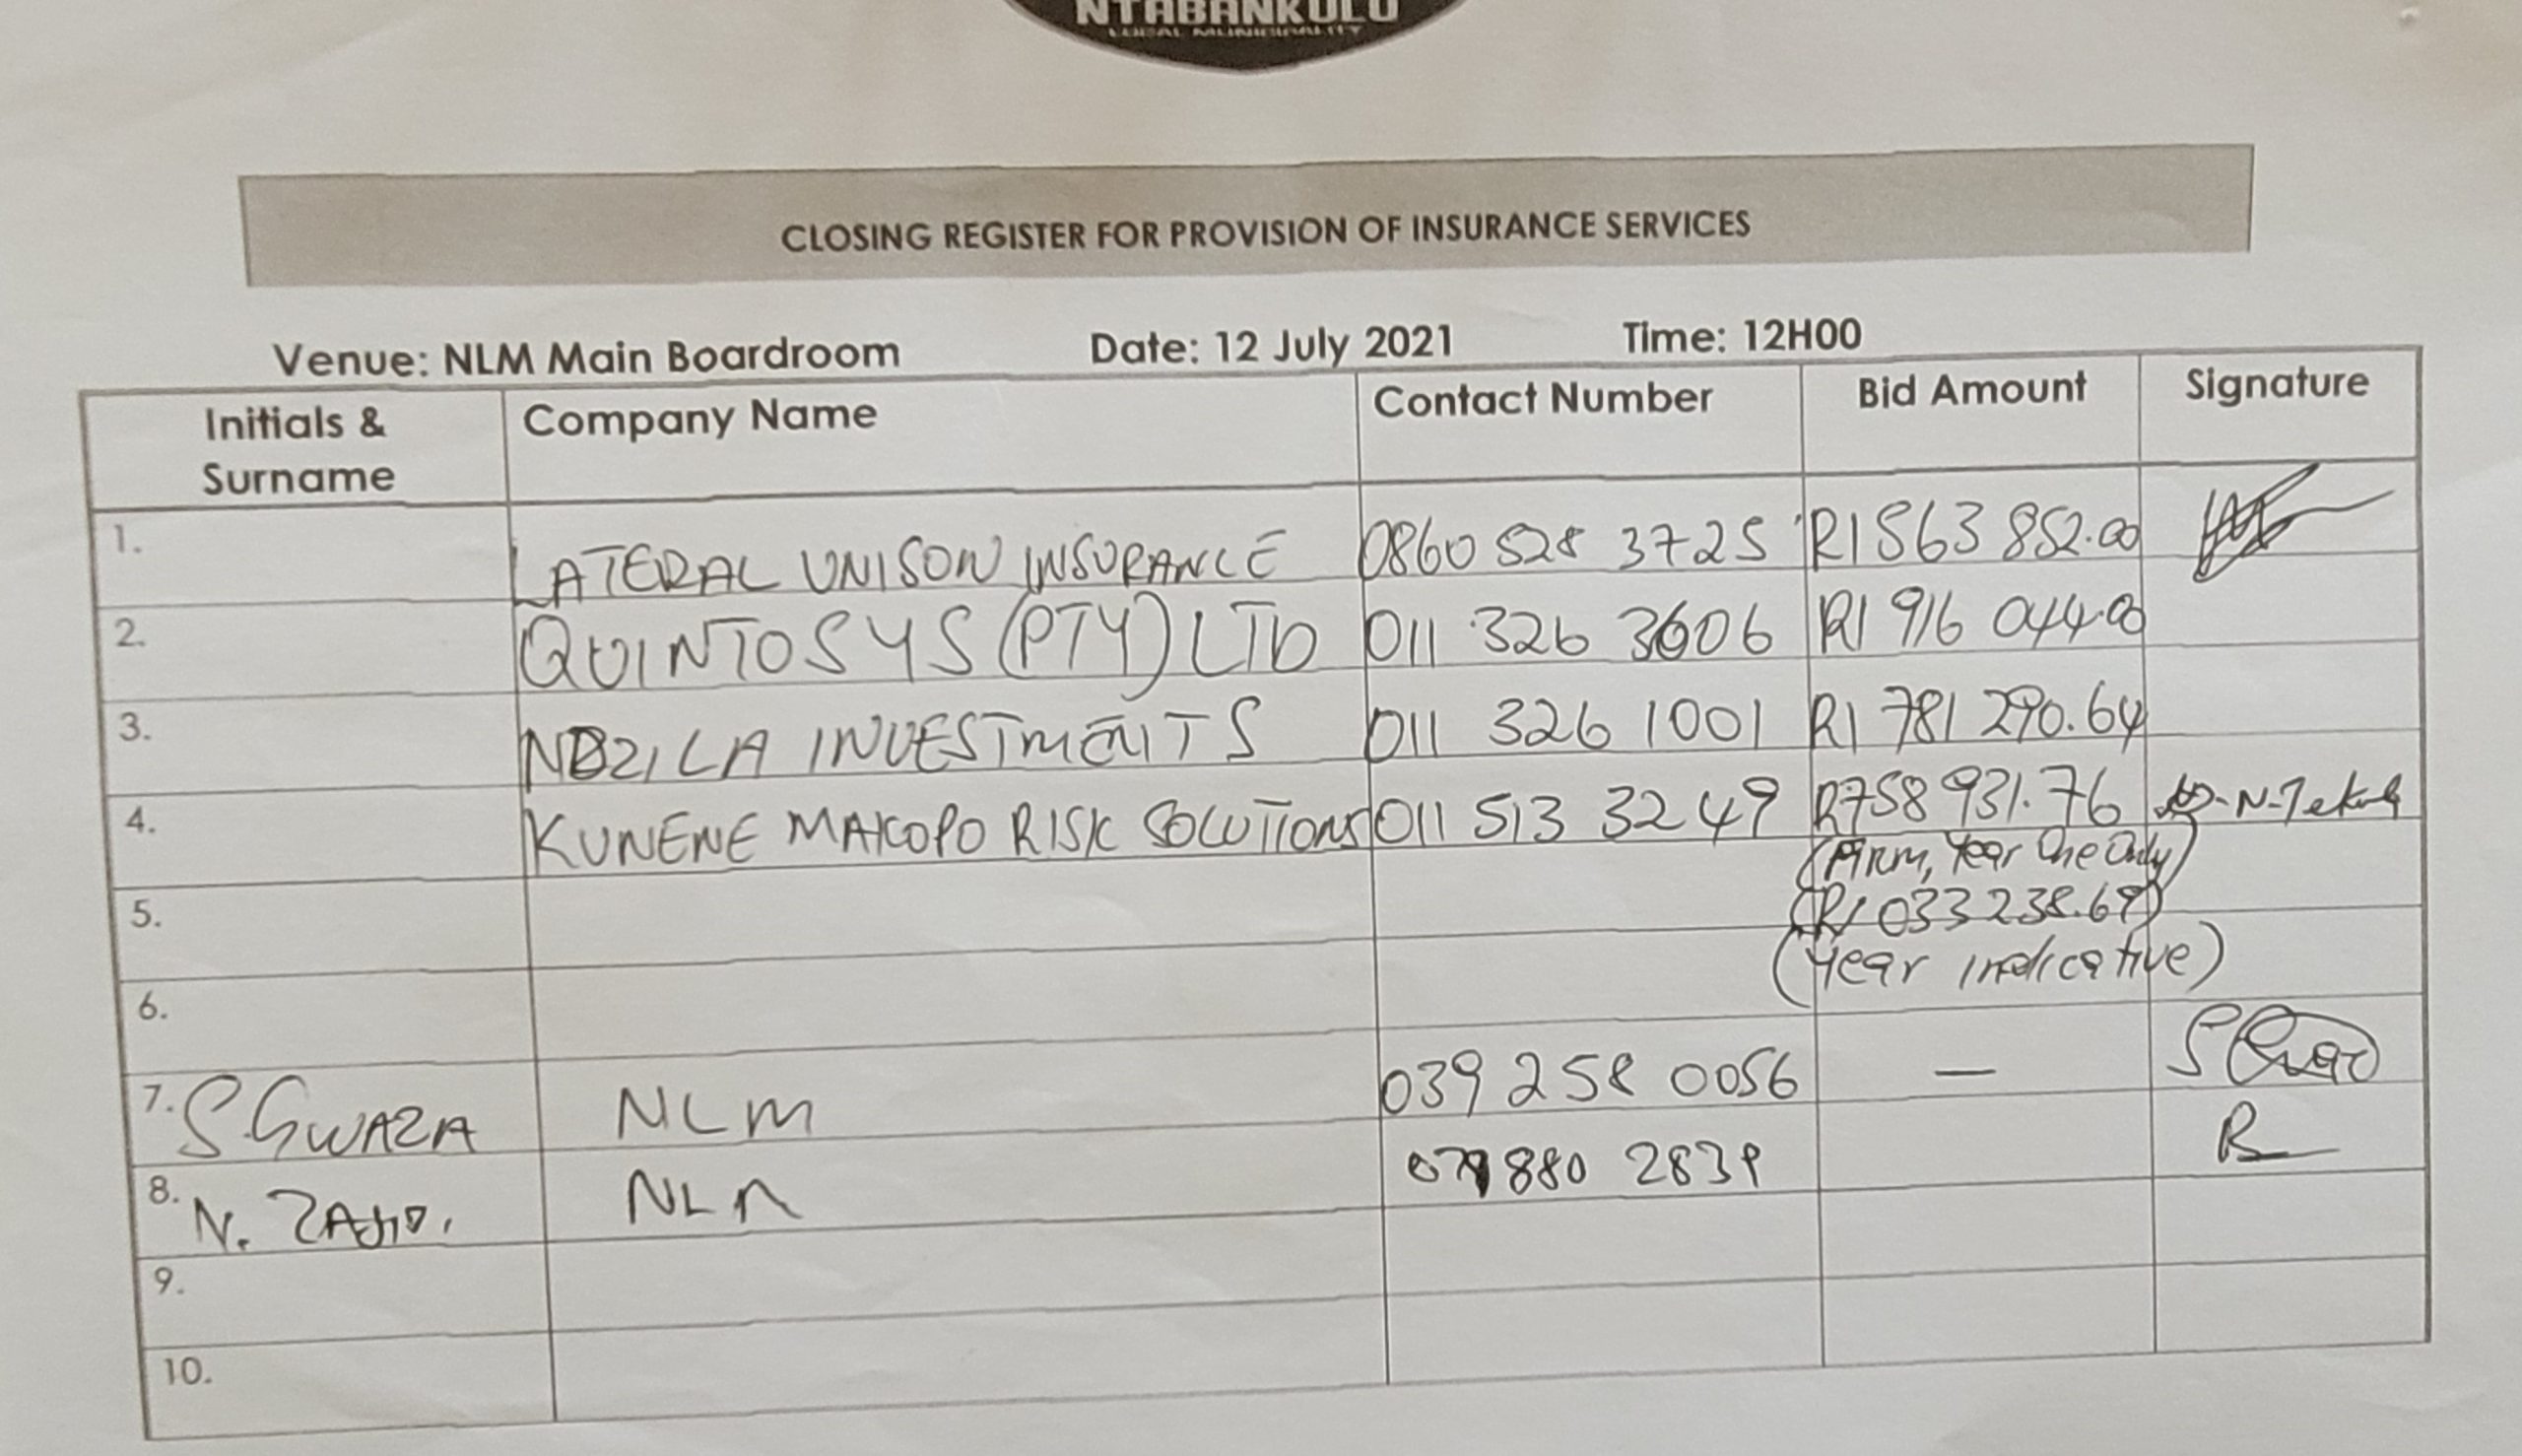 NTABANKULU
LOCAL MUNICIPALITY
CLOSING REGISTER FOR PROVISION OF INSURANCE SERVICES
Venue: NLM Main Boardroom Date: 12 July 2021 Time: 12H00
Initials & Surname Company Name Contact Number Bid Amount Signature
1. LATERAL UNISON INSURANCE 0860 528 3725 R1 563 852.00
2. QUINTOSYS (PTY) LTD 011 326 3606 R1 916 044.00
3. INVESTMENTS 011 326 1001 R1 781 290.64
4. KUNENE MAKOPO RISK SOLUTIONS 011 513 3249 R758 931.76
(Firm, Year One Only)
5. (R1 033 238.69)
(Year indicative)
6.
7. S. GWAZA NLM 039 258 0056 —
8. N. NLM 880 2839
9.
10.